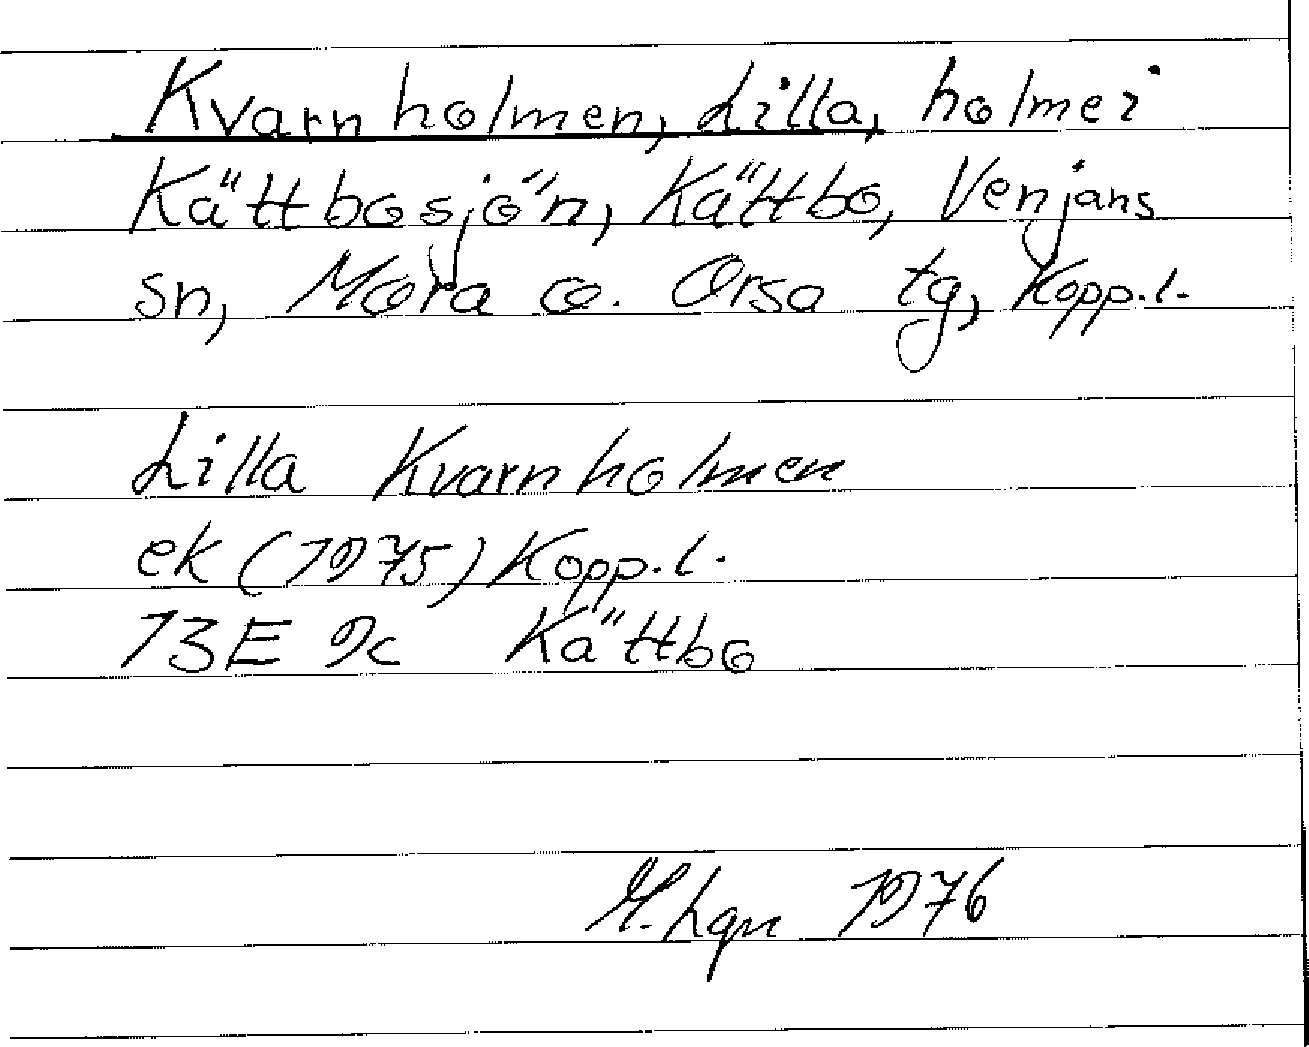 Kvarnholmen, Lilla, holme i
Kättbosjön, Kättbo, Venjans
sn, Mora o. Orsa tg, Kopp.l.
Lilla Kvarnholmen
ek (1975) Kopp.l.
13E 9c Kättbo
M.Lgn 1976